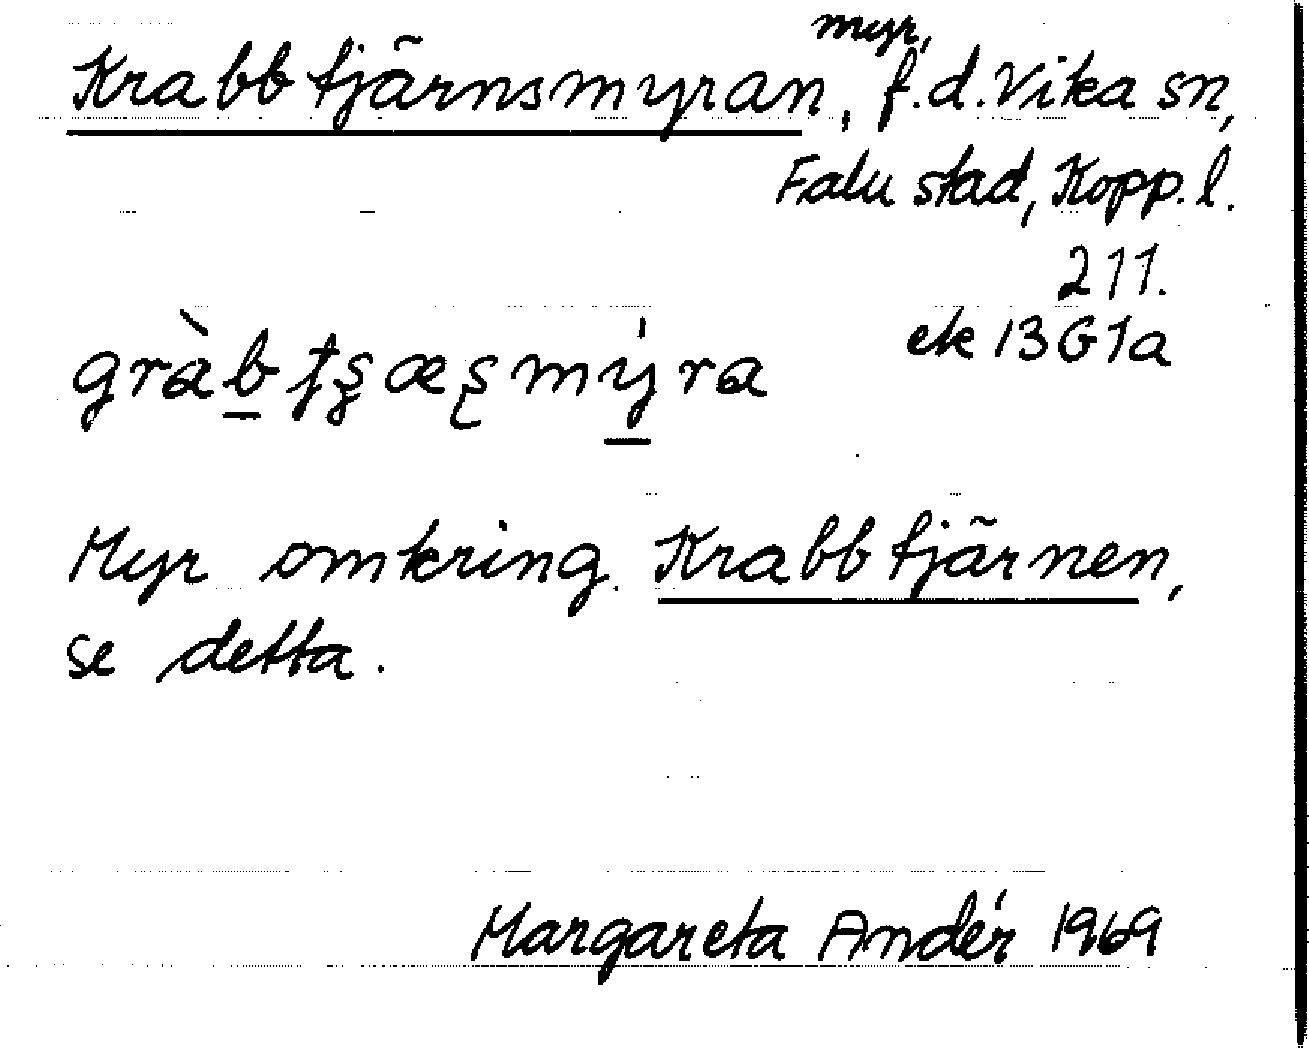 Krabbtjärnsmyran, myr, f.d. Vika sn,
Falu stad, Kopp. l.
211.
ek 13G1a
Myr omkring Krabbtjärnen,
se detta.
Margareta Andér 1969